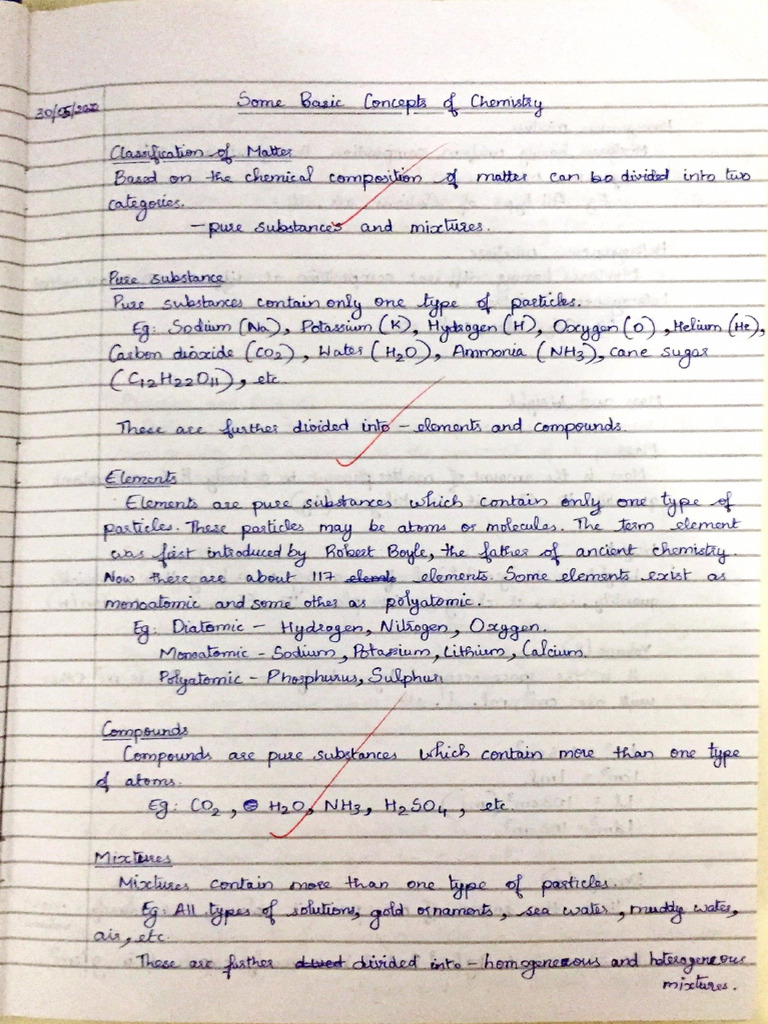 Some Basic Concepts of Chemistry
Classification of Matter
Based on the chemical composition of matter can be divided into two
categories.
- pure substances and mixtures.
Pure substance
Pure substances contain only one type of particles.
Eg: Sodium (Na), Potassium (K), Hydrogen (H), Oxygen (O), Helium (He),
Carbon dioxide (CO₂), Water (H₂O), Ammonia (NH₃), cane sugar
(C₁₂H₂₂O₁₁), etc.
These are further divided into - elements and compounds.
Elements
Elements are pure substances which contain only one type of
particles. These particles may be atoms or molecules. The term element
was first introduced by Robert Boyle, the father of ancient chemistry.
Now there are about 117 elements. Some elements exist as
monoatomic and some other as polyatomic.
Eg: Diatomic - Hydrogen, Nitrogen, Oxygen.
Monoatomic - Sodium, Potassium, Lithium, Calcium.
Polyatomic - Phosphurus, Sulphur
Compounds
Compounds are pure substances which contain more than one type
of atoms.
Eg: CO₂, H₂O, NH₃, H₂SO₄, etc.
Mixtures
Mixtures contain more than one type of particles.
Eg: All types of solutions, gold ornaments, sea water, muddy water,
air, etc.
These are further divided into - homogeneous and heterogeneous
mixtures.